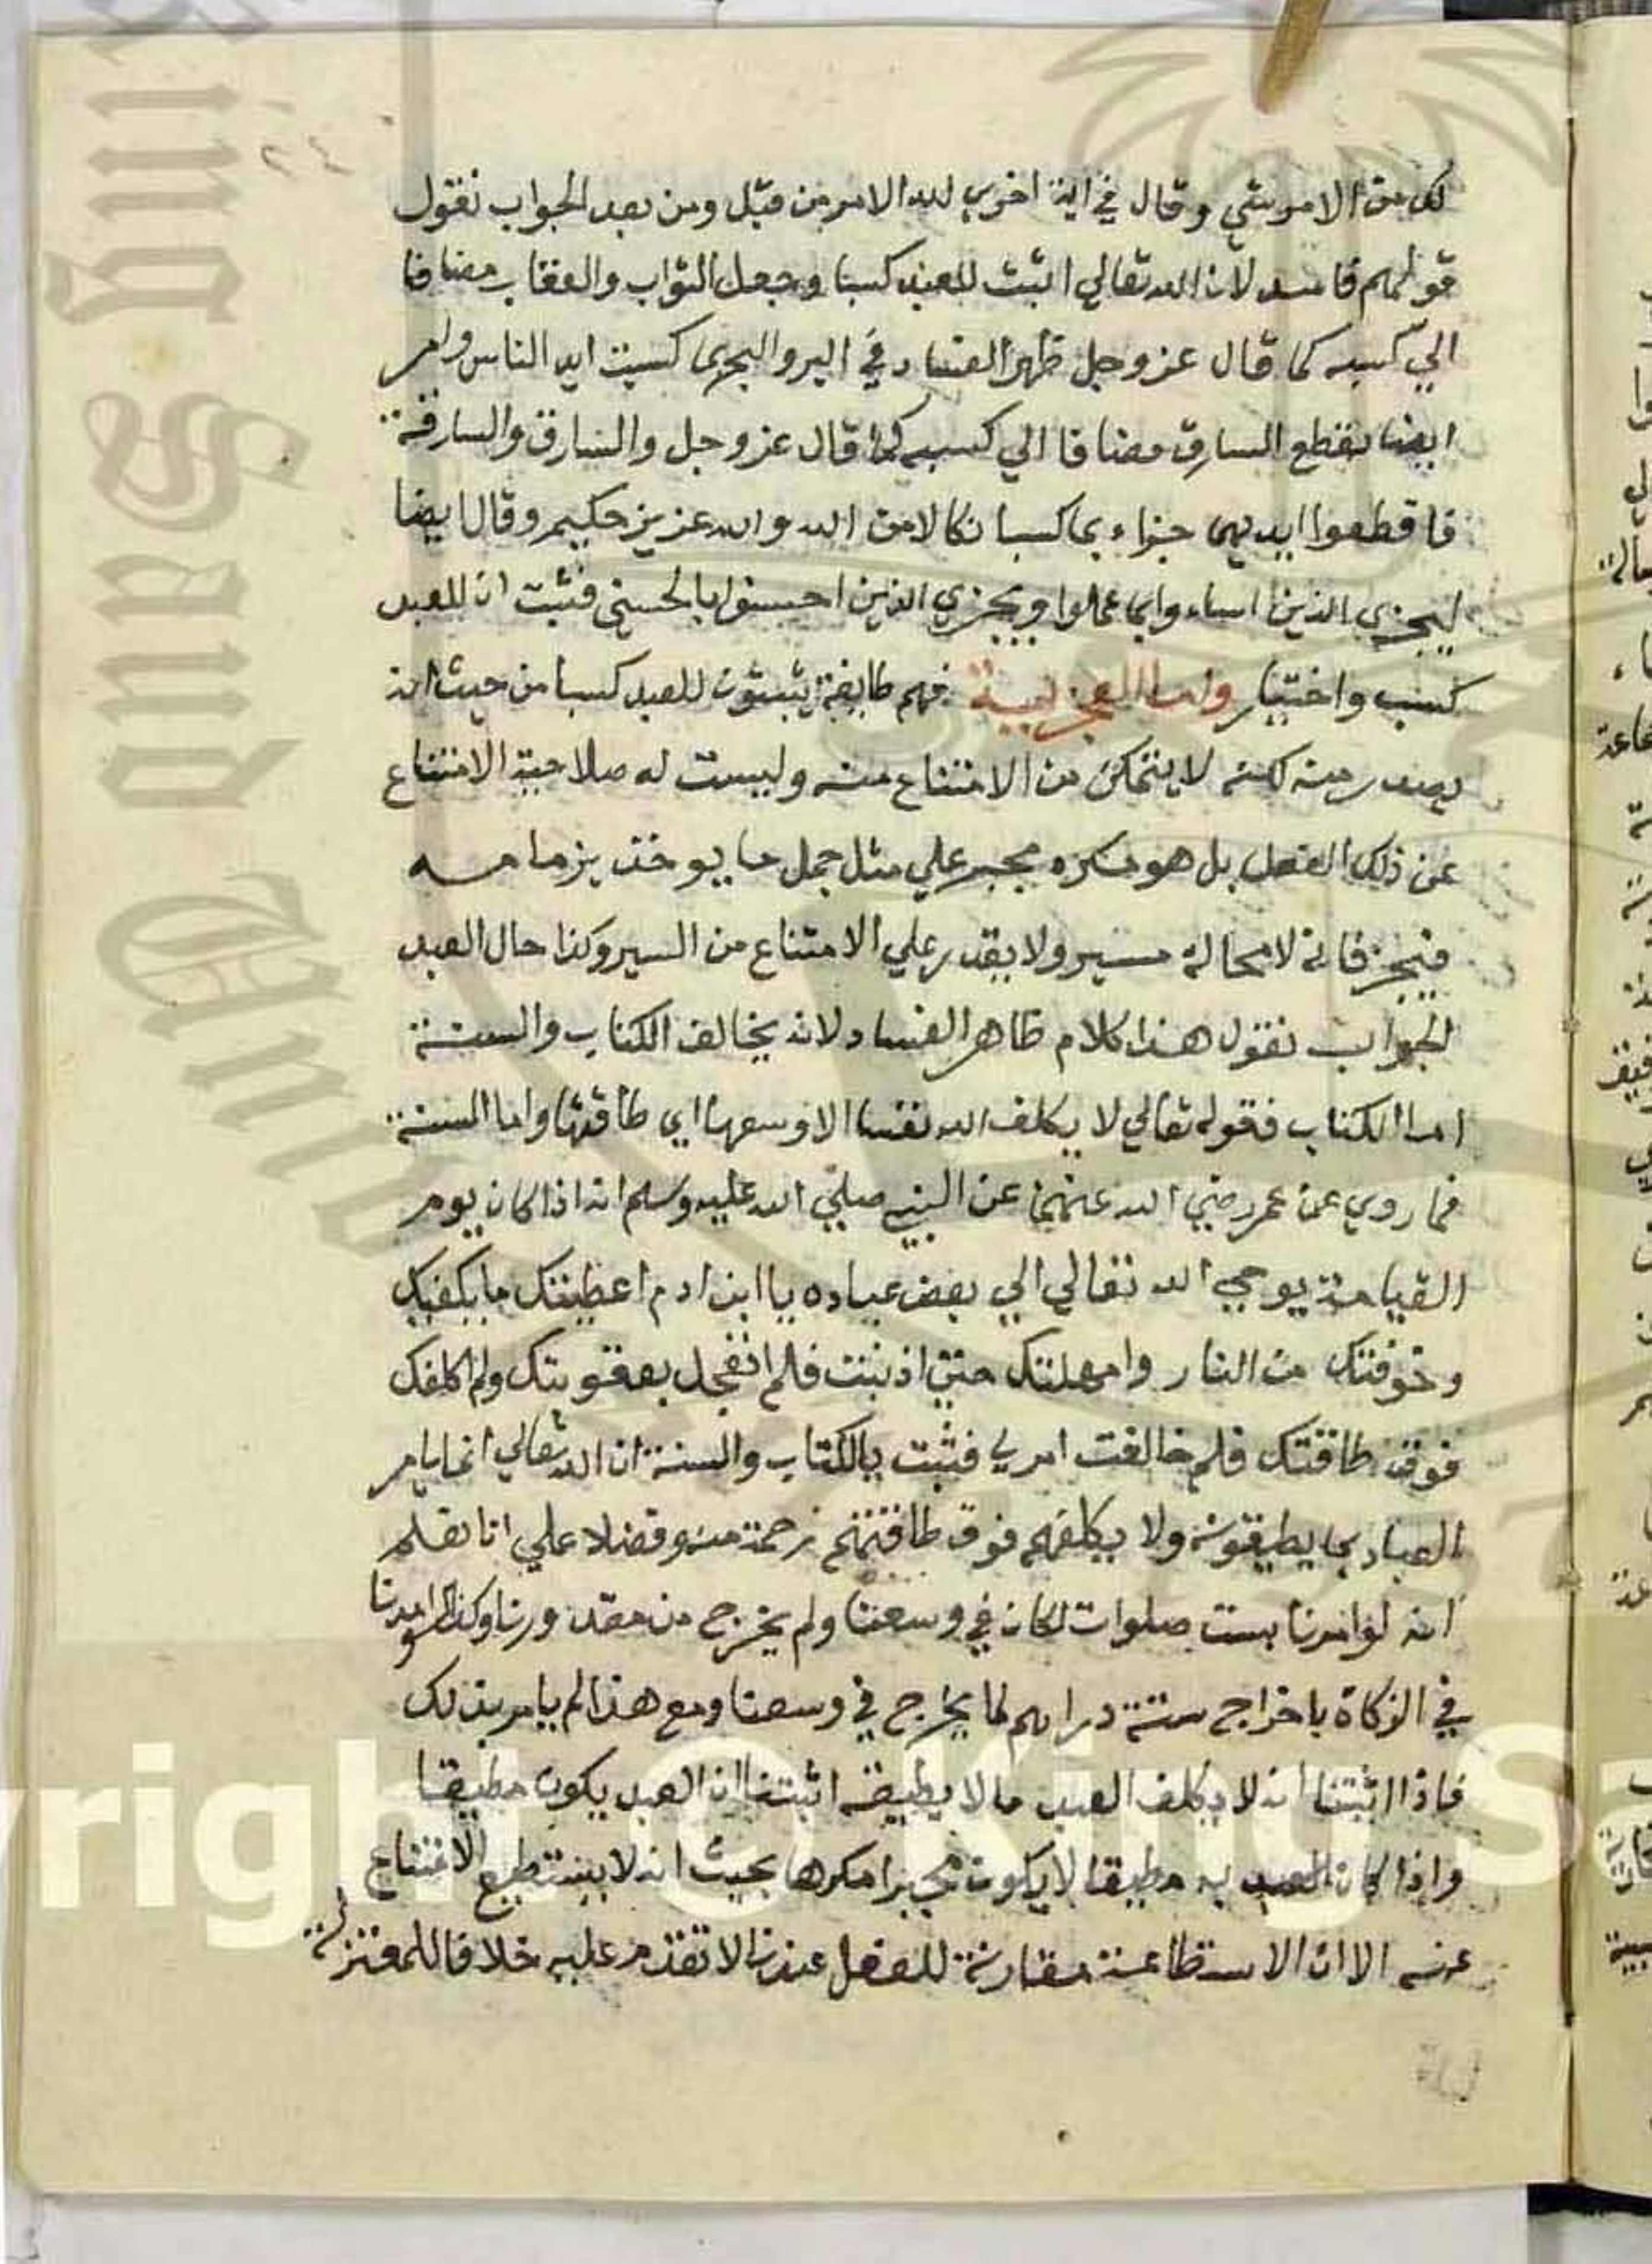 ٢٤
لك من الامر شي وقال في اية اخري لله الامر من قبل ومن بعد الجواب نقول
قولهم فاسد لان الله تعالي اثبت للعبد كسبا وجعل الثواب والعقاب مضافا
الي كسبه كما قال عز وجل ظهر الفساد في البر والبحر بما كسبت ايد الناس وامر
ايضا بقطع السارق مضافا الي كسبه كما قال عز وجل والسارق والسارقة
فاقطعوا ايديهما جزاء بما كسبا نكالا من الله والله عزيز حكيم وقال ايضا
ليجزي الذين اساءوا بما عملوا ويجزي الذين احسنوا بالحسني فثبت ان للعبد
كسب واختيار واما فهم طايفة يثبتون للعبد كسبا من حيث انه
يصدر منه لكنه لا يتمكن من الامتناع منه وليست له صلاحية الامتناع
عن ذلك الفعل بل هو مكره مجبر علي مثل جمل ما يوخذ بزمامه
فيجر فانه لا محالة مسير ولا يقدر علي الامتناع من السير وكذا حال العبد
الجواب نقول هذا كلام ظاهر الفساد لانه يخالف الكتاب والسنة
اما الكتاب فقوله تعالي لا يكلف الله نفسا الا وسعها اي طاقتها واما السنة
فما روي عن عمر رضي الله عنهما عن النبي صلي الله عليه وسلم انه اذا كان يوم
القيامة يوحي الله تعالي الي بعض عباده يا ابن ادم اعطيتك ما يكفيك
وخوفتك من النار وامهلتك حتي اذنبت فلم اعجل بعقوبتك ولم اكلفك
فوق طاقتك فلم خالفت امري فثبت بالكتاب والسنة ان الله تعالي انما يامر
العباد بما يطيقونه ولا يكلفهم فوق طاقتهم رحمة منه وفضلا علي انا نعلم
انه لو امرنا بست صلوات لكان في وسعنا ولم يخرج من مقدورنا وكذا لو امرنا
في الزكاة باخراج ستة دراهم لما يخرج في وسعنا ومع هذا لم يامر بذلك
فاذا اثبتنا انه لا يكلف العبد ما لا يطيقه اثبتنا ان العبد يكون مطيقا
واذا كان العبد به مطيقا لا يكون مجبرا مكرها بحيث انه لا يستطيع الامتناع
عنه الا ان الاستطاعة مقارنة للفعل عندنا لا تقدم عليه خلافا للمعتزلة